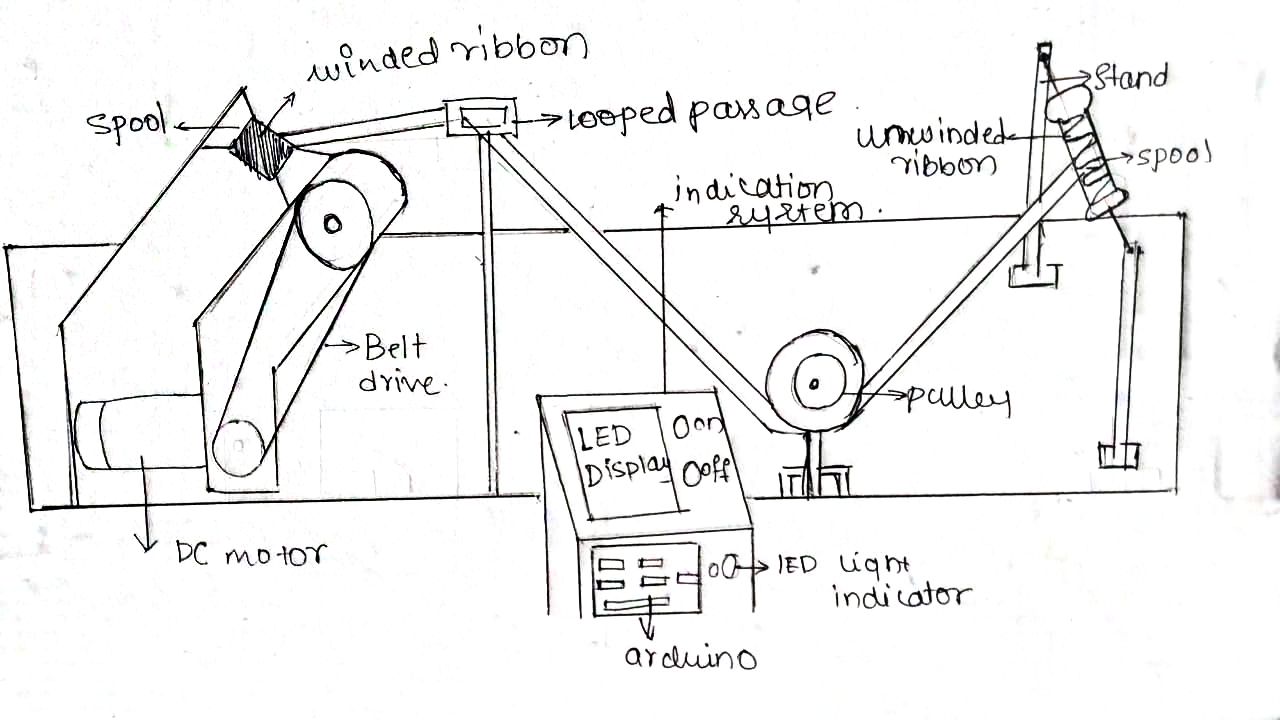 winded ribbon
spool
looped passage
Stand
unwinded
ribbon
spool
indication
system.
Belt
drive.
pulley
LED
Display
on
off
DC motor
LED light
indicator
arduino